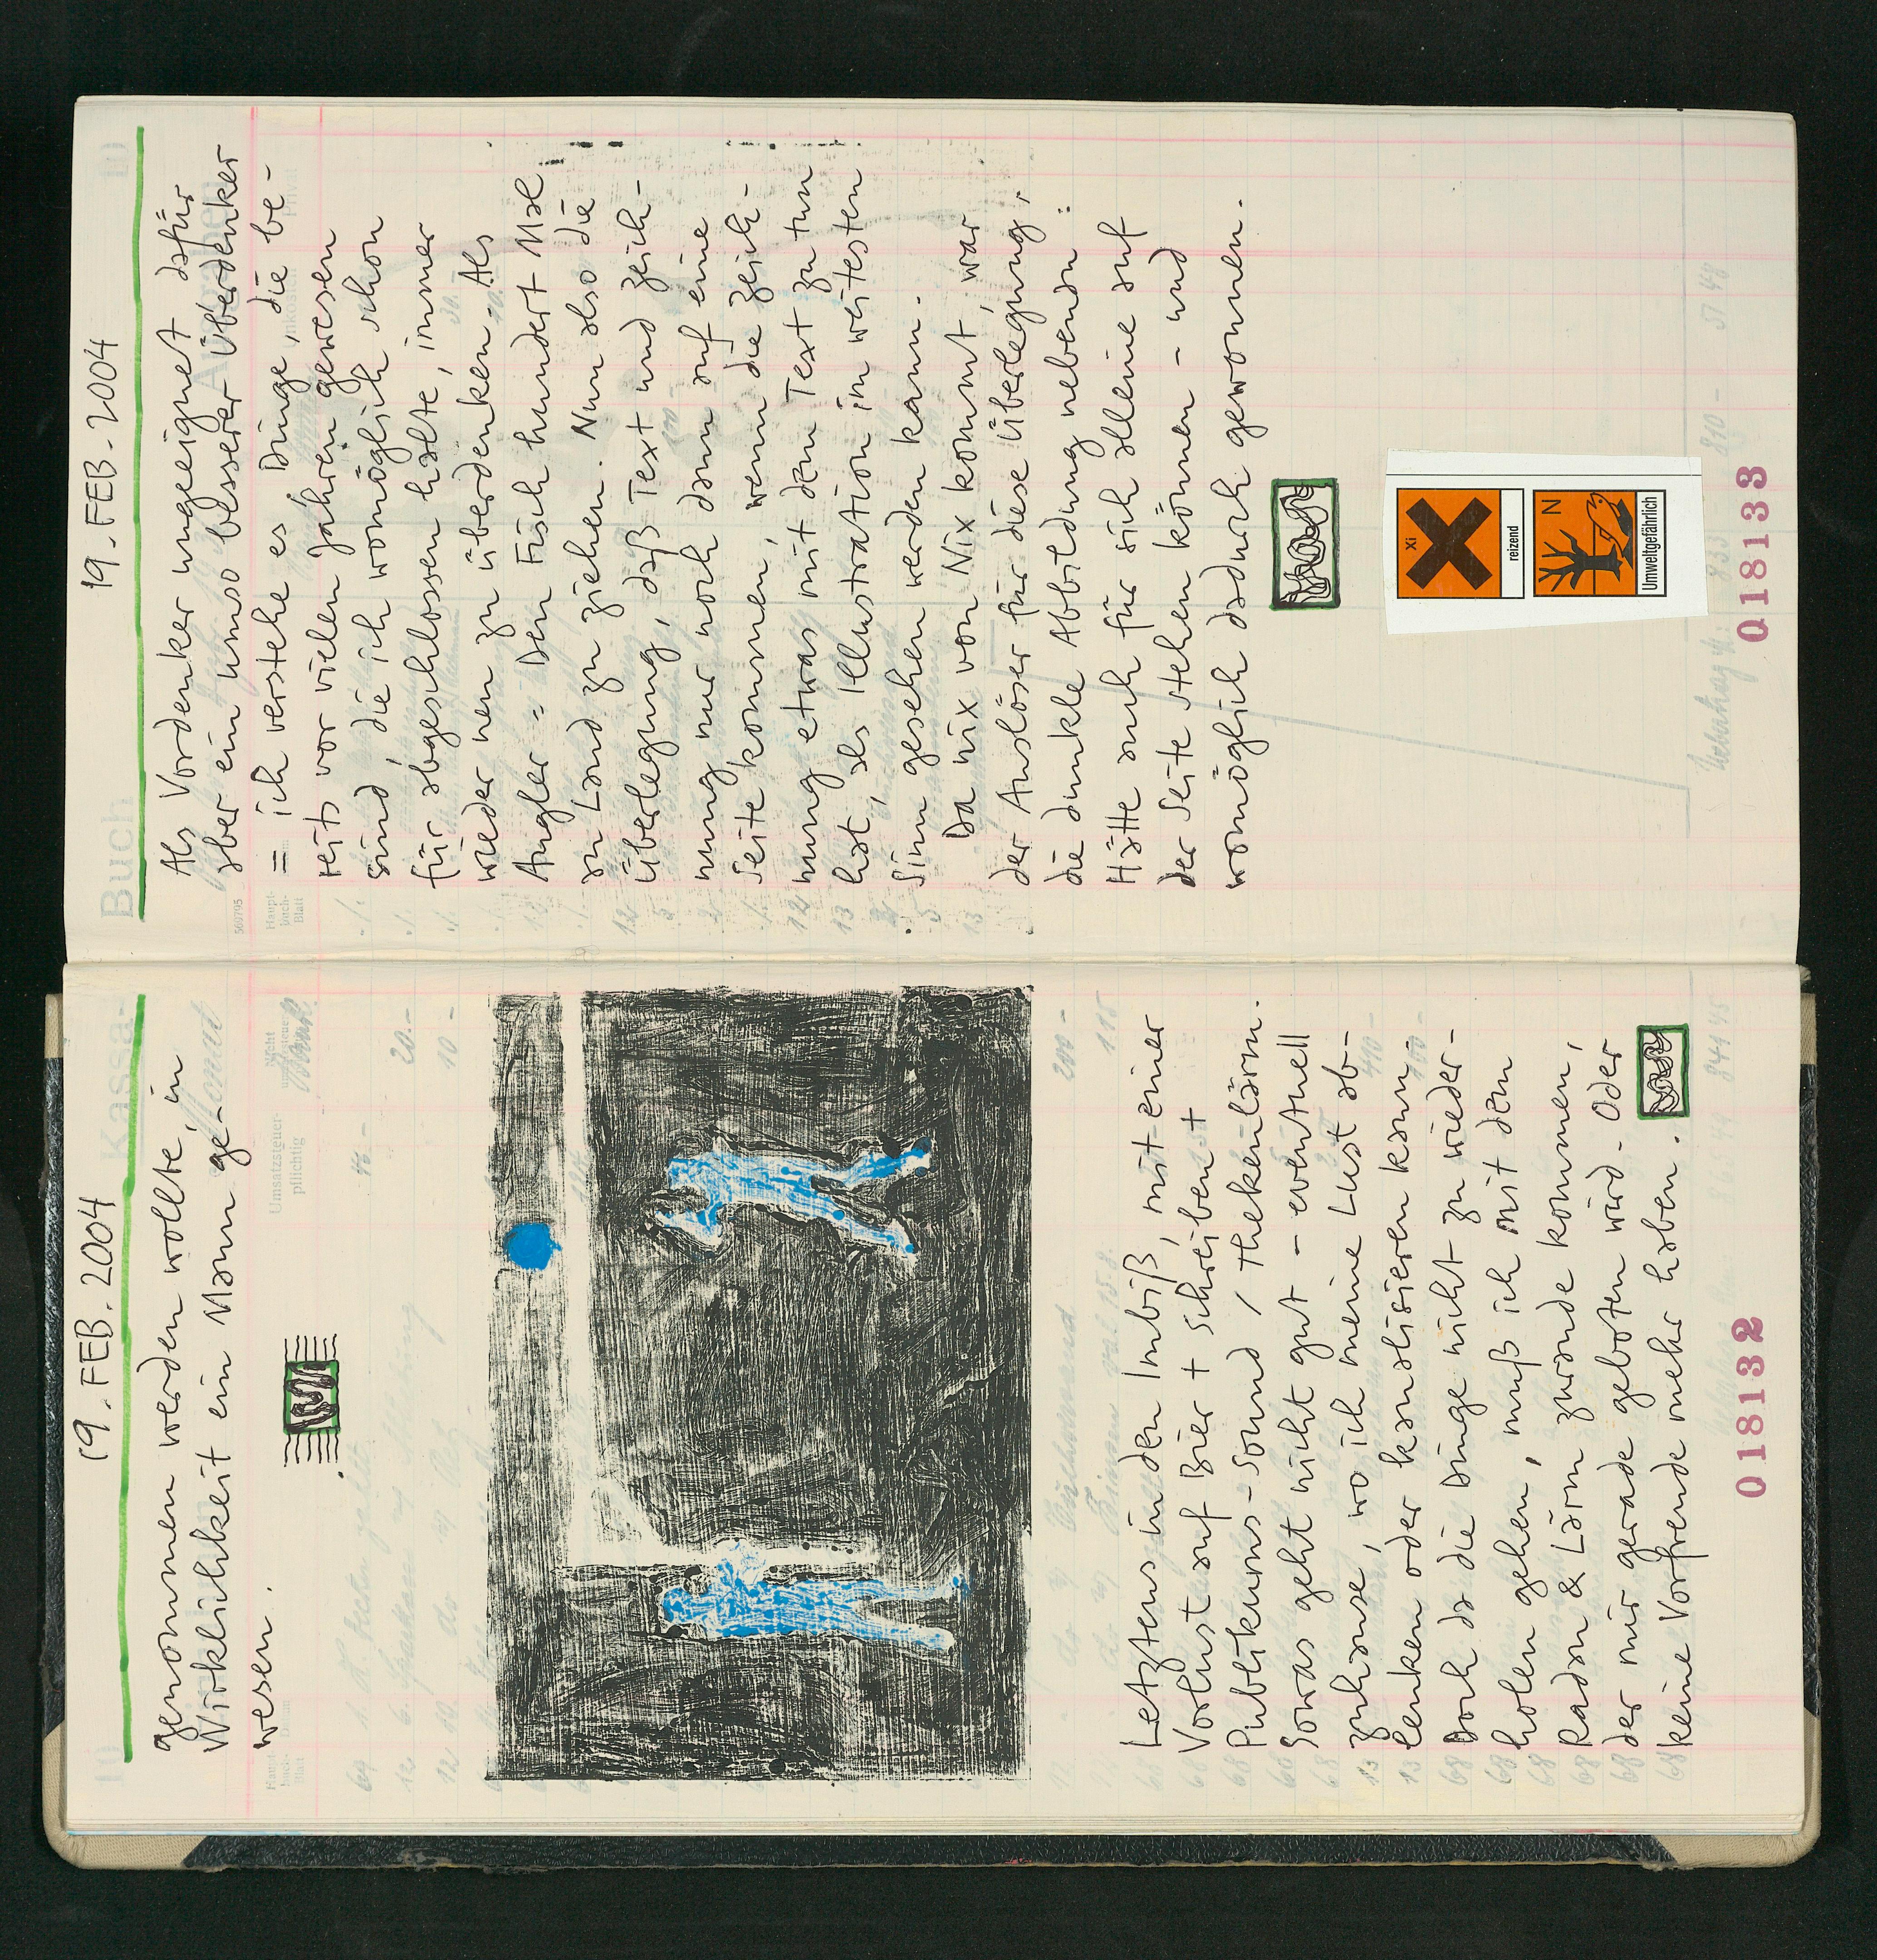 19. FEB. 2004
genommen werden wollte, in
Wirklichkeit ein Mann ge-
wesen.
Letztens in den Imbiß, mit einer
Vorlust auf Bier + schreiben +
Publikums-Sound / Thekenlärm.
Sowas geht nicht gut - eventuell
zuhause, wo ich meine Lust ab-
lenken oder kanalisieren kann.
Doch da die Dinge nicht zu wieder-
holen gehen, muß ich mit dem
Radau & Lärm zurande kommen,
der mir gerade geboten wird. Oder
keine Vorfreude mehr haben.
018132
19. FEB. 2004
Als Vordenker ungeeignet dafür
aber ein umso besserer Überdenker
= ich verstehe es Dinge, die be-
reits vor vielen Jahren gewesen
sind, die ich womöglich schon
für abgeschlossen halte, immer
wieder neu zu überdenken. Als
Angler = den Fisch hundert Mal
an Land zu ziehen. Nun also die
Überlegung, daß Text und Zeich-
nung nur noch dann auf eine
Seite kommen, wenn die Zeich-
nung etwas mit dem Text zu tun
hat, als Illustration im weitesten
Sinn gesehen werden kann.
Da nix von Nix kommt, war
der Auslöser für diese Überlegung,
die dunkle Abbildung nebenan:
Hätte auch für sich alleine auf
der Seite stehen können - und
womöglich dadurch gewonnen.
Xi
reizend
N
Umweltgefährlich
018133
Kassa-
Buch
Umsatzsteuer
pflichtig
Haupt-
buch-
Blatt
569795